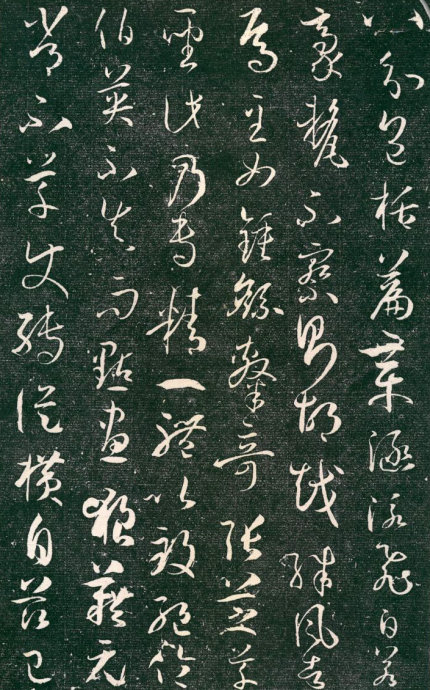 八分包括篇章涵泳飛白若
豪釐不察則胡越殊風者
焉至如鍾繇隸奇張芝草
聖此乃專精一體以致絕倫
伯英不真而點畫狼藉元
常不草使轉縱橫自茲已